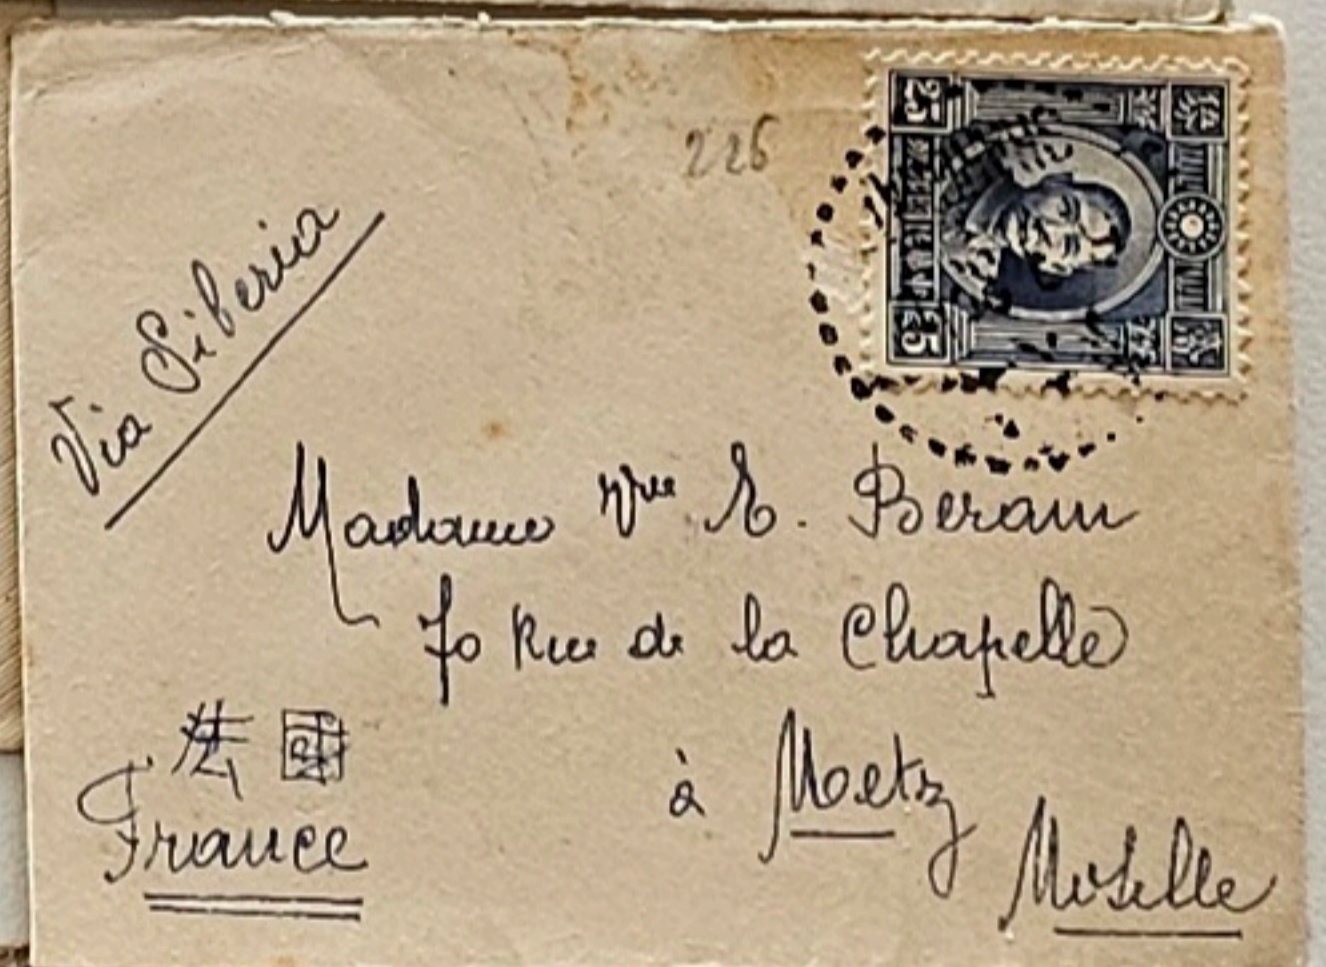 226
25
25
Via Siberia
Madame Vve E. Beram
70 Rue de la Chapelle
à Metz
Moselle
法國
France